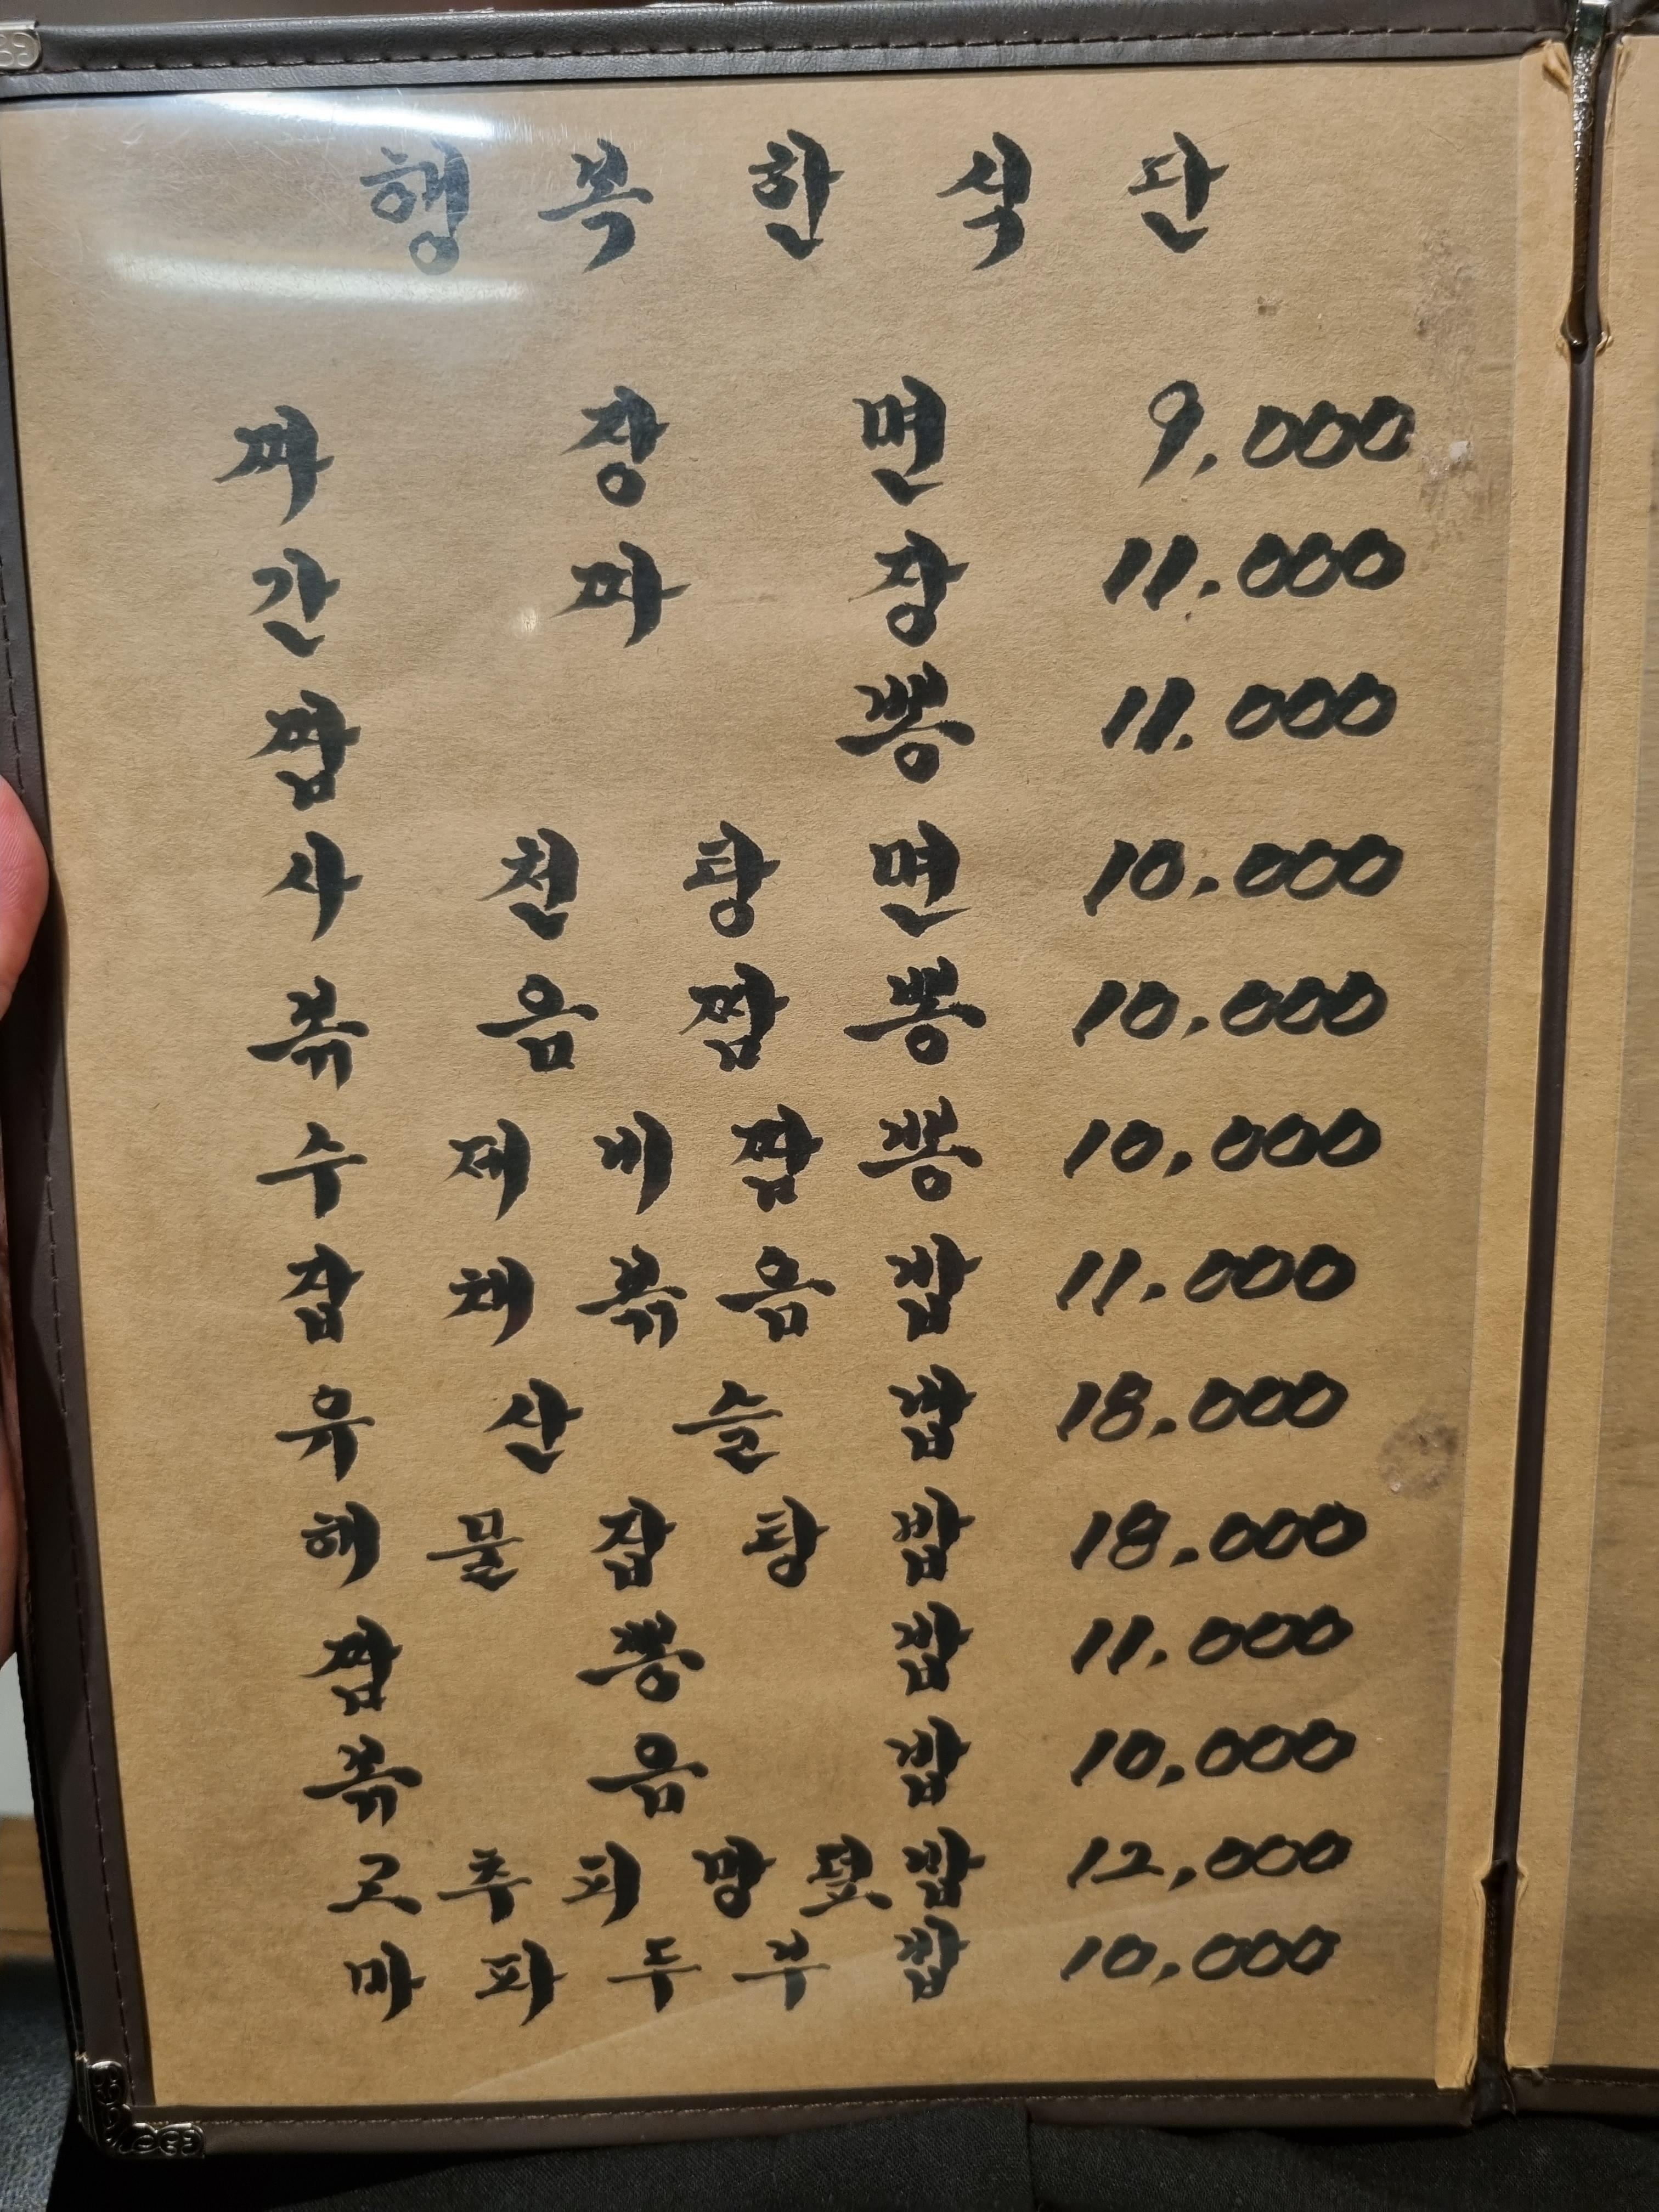 행복한식단
짜장면 9,000
간짜장 11.000
짬뽕 11.000
사천탕면 10.000
볶음짬뽕 10.000
수제비짬뽕 10,000
잡채볶음밥 11.000
유산슬밥 18.000
해물잡탕밥 18.000
짬뽕밥 11.000
볶음밥 10,000
고추피망덮밥 12,000
마파두부밥 10,000